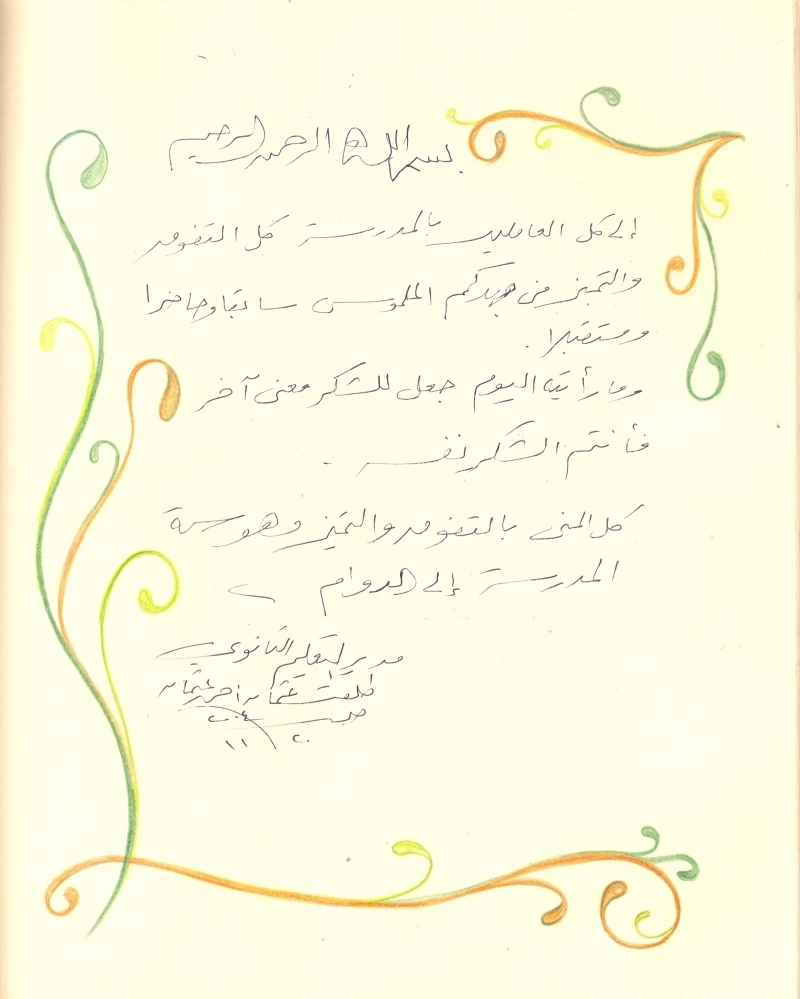 بسم الله الرحمن الرحيم
إلى كل العاملين بالمدرسة كل التفوق
والتميز من جهدكم الملموس سابقا وحاضرا
ومستقبلا.
وما رأيته اليوم جعل للشكر معنى آخر
فأنتم الشكر نفسه.
كل المنى بالتفوق والتميز وهو سمة
المدرسة إلى الدوام
مدير التعليم الثانوي
طلعت عثمان أحمد عثمان
١١ / ٢٠